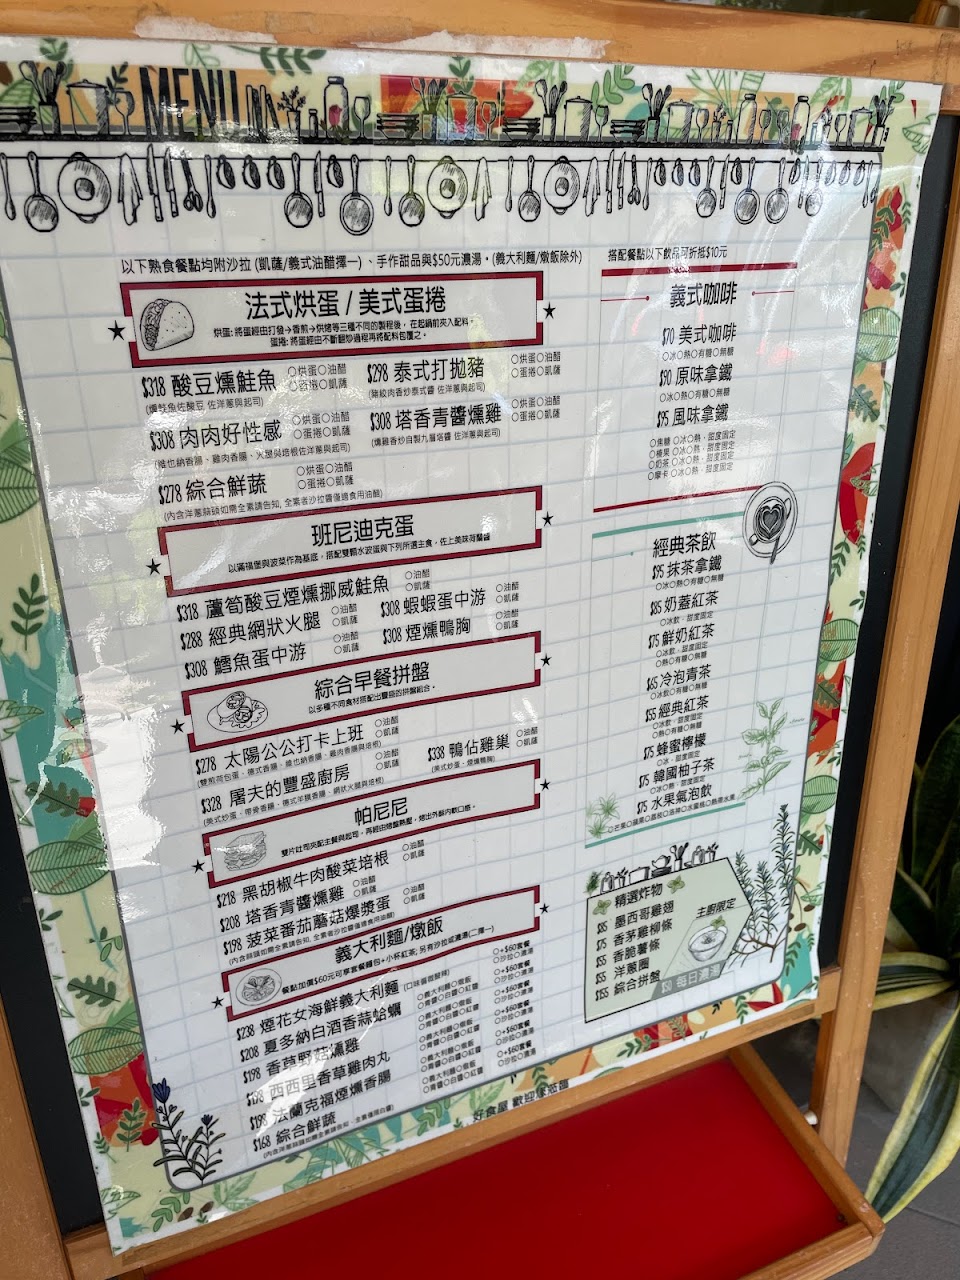 MENU
以下熟食餐點均附沙拉 (凱薩/義式油醋擇一) 、手作甜品與$50元濃湯。(義大利麵/燉飯除外)
法式烘蛋 / 美式蛋捲
烘蛋: 將蛋經由打發→香煎→烘烤等三種不同的製程後, 在起鍋前夾入配料。
蛋捲: 將蛋經由不斷翻炒過程再將配料包覆之。
$318 酸豆燻鮭魚 ○烘蛋○油醋
○蛋捲○凱薩
$298 泰式打拋豬 ○烘蛋○油醋
○蛋捲○凱薩
(豬絞肉香炒泰式醬 佐洋蔥與起司)
$308 肉肉好性感 ○烘蛋○油醋
○蛋捲○凱薩
(維也納香腸、雞肉香腸、火腿與培根佐洋蔥與起司)
$308 塔香青醬燻雞 ○烘蛋○油醋
○蛋捲○凱薩
(燻雞香炒自製九層塔醬 佐洋蔥與起司)
$278 綜合鮮蔬 ○烘蛋○油醋
○蛋捲○凱薩
(內含洋蔥蒜頭如需全素請告知, 全素者沙拉醬僅適食用油醋)
班尼迪克蛋
以滿福堡與菠菜作為基底, 搭配雙顆水波蛋與下列所選主食, 佐上美味荷蘭醬
$318 蘆筍酸豆煙燻挪威鮭魚 ○油醋
○凱薩
$288 經典網狀火腿 ○油醋
○凱薩
$308 蝦蝦蛋中游 ○油醋
○凱薩
$308 鱈魚蛋中游 ○油醋
○凱薩
$308 煙燻鴨胸 ○油醋
○凱薩
綜合早餐拼盤
以多種不同食材搭配出豐盛的拼盤組合。
$278 太陽公公打卡上班 ○油醋
○凱薩
(雙煎荷包蛋、德式香腸、維也納香腸、雞肉香腸與培根)
$338 鴨佔雞巢 ○油醋
○凱薩
(美式炒蛋、煙燻鴨胸)
$328 屠夫的豐盛廚房 ○油醋
○凱薩
帕尼尼
雙片吐司夾配主餐與起司, 再經由烤盤熱壓, 烤出外酥內軟口感。
$218 黑胡椒牛肉酸菜培根 ○油醋
○凱薩
$208 塔香青醬燻雞 ○油醋
○凱薩
$198 菠菜番茄蘑菇爆漿蛋 ○油醋
○凱薩
(內含蒜頭如需全素請告知, 全素者沙拉醬僅適食用油醋)
義大利麵/燉飯
餐點加價$60元可享套餐麵包+小杯紅茶; 另有沙拉或濃湯(二擇一)
$238 煙花女海鮮義大利麵 (口味偏微酸辣) ○+$60套餐
○沙拉○濃湯
$208 夏多納白酒香蒜蛤蠣 ○義大利麵○燉飯
○青醬○白醬○紅醬 ○+$60套餐
○沙拉○濃湯
$198 香草野菇燻雞 ○義大利麵○燉飯
○青醬○白醬○紅醬 ○+$60套餐
○沙拉○濃湯
$198 西西里香草雞肉丸 ○義大利麵○燉飯
○青醬○白醬○紅醬 ○+$60套餐
○沙拉○濃湯
$198 法蘭克福煙燻香腸 ○義大利麵○燉飯
○青醬○白醬○紅醬 ○+$60套餐
○沙拉○濃湯
$168 綜合鮮蔬 ○義大利麵○燉飯
○青醬○白醬○紅醬 ○+$60套餐
○沙拉○濃湯
搭配餐點以下飲品可折抵$10元
義式咖啡
$70 美式咖啡
○冰○熱○有糖○無糖
$90 原味拿鐵
○冰○熱○有糖○無糖
$95 風味拿鐵
○焦糖 ○冰○熱, 甜度固定
○榛果 ○冰○熱, 甜度固定
○奶茶 ○冰○熱, 甜度固定
○摩卡 ○冰○熱, 甜度固定
經典茶飲
$95 抹茶拿鐵
○冰○熱○有糖○無糖
$85 奶蓋紅茶
○冰飲, 甜度固定
$75 鮮奶紅茶
○冰飲, 甜度固定
○熱○有糖○無糖
$65 冷泡青茶
○冰飲○有糖○無糖
$55 經典紅茶
○冰飲, 甜度固定
○熱○有糖○無糖
$75 蜂蜜檸檬
○冰, 甜度固定
$75 韓國柚子茶
○冰○熱, 甜度固定
$75 水果氣泡飲
精選炸物
主廚限定
$85 墨西哥雞翅
$75 香茅雞柳條
$55 香脆薯條
$55 洋蔥圈
$155 綜合拼盤
$50 每日濃湯
好食屋 歡迎您蒞臨